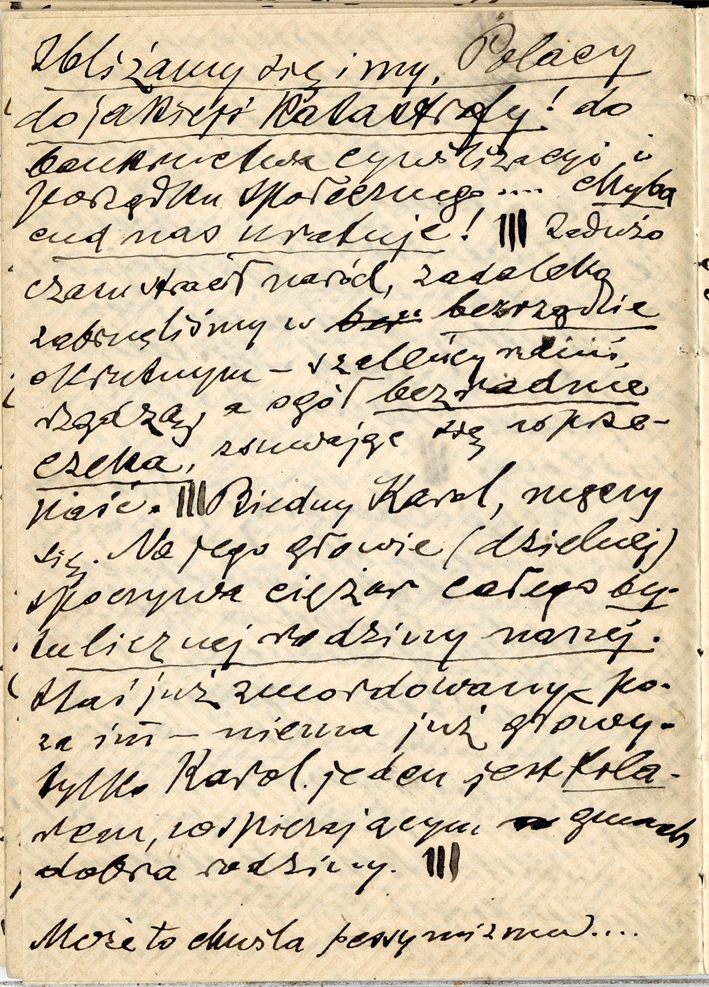 Zbliżamy się i my, Polacy
do jakiejś katastrofy! do
bankructwa cywilizacji i
porządku społecznego.... chyba
cud nas uratuje! ||| Zadużo
czasu stracił naród, zadaleko
zabrnęliśmy w bezrządzie
okrutnym – szaleńcy nami
rządzą, a ogół bezradnie
czeka, zsuwając się w prze-
paść. ||| Biedny Karol, męczy
się. Na jego głowie (dzielnej)
spoczywa ciężar całego
rodziny naszej.
Staś już zmordowany, po-
za im – niema już głowy –
tylko Karol jeden jest fila-
rem, wspierającym gmach
dobra rodziny. |||
Może to chwila pessymizmu....